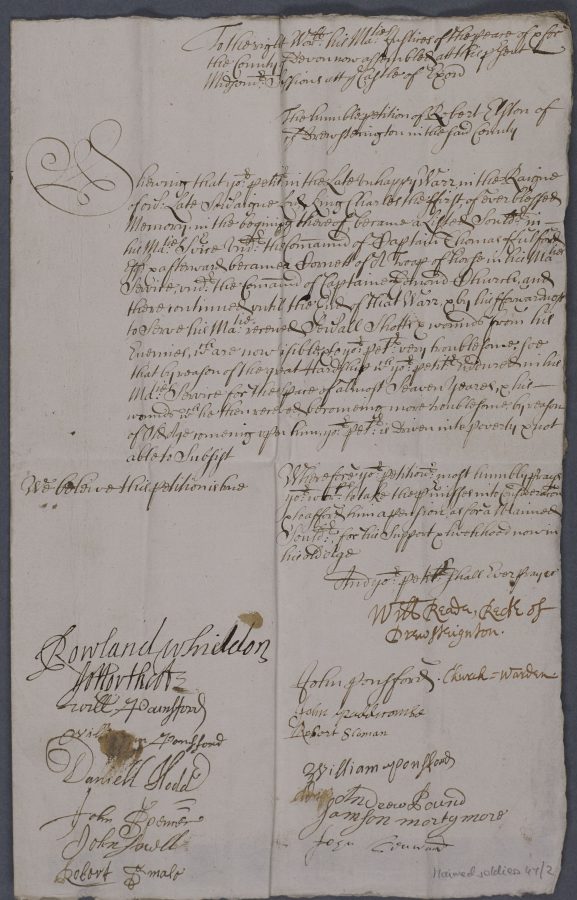 To the right Hoble: his Maties Justices of the peace of & for
the County of Devon now assembled att this psent
Midsomr: Sessions att ye Castle of Exon
The humble petition of Robert Elston of
Drewsteington in the said County
Shewing that yor petitr in the Late unhappy Warr in the Raigne
of our Late Soveraigne Lord King Charles the first of ever blessed
Memory, in the begining thereof, became a Listed Souldr: in
his Maties Service undr: the command of Captain Thomas Fulford
& afterward became a Cornett of A Troop of horse in his Maties
Service, undr: the Comand of Captaine Edmond Church, and
there continued until the End of that Warr, & by his forwardness
to Serve his Matie: received Severall Shotts & wounds from his
Enemies, wch are now visible, & to yor petr: very troublesome, soe
that by reason of the great Hardship wch yor petitr endured in his
Maties Service for the space of almost Seaven yeares, & his
wounds wch he then received becomeing more troublesome, by reason
of Old Age comeing upon him, yor petr: is driven into poverty & not
able to Subsist
We beleive this petition is true
Wherefore yor petitionr: most humbly prayes
yor worps: to take the premisses into Consideration
& to afford him a pension as for a Maimed
Souldr: for his Support & livelihood now in
his old Age
And yor petitr shall Ever pray &c
Will Reade, Rectr of
Drewsteignton.
Rowland Whiddon
John Ponsford. Church-Warden
Will Ponsford
John
Robert Sloman
Ponsford
William Ponsford
Daniell Hodd
Drew Bound
Samson mortymore
John
John
John Jowll
Robert Smale
Maimed soldiers 47/2